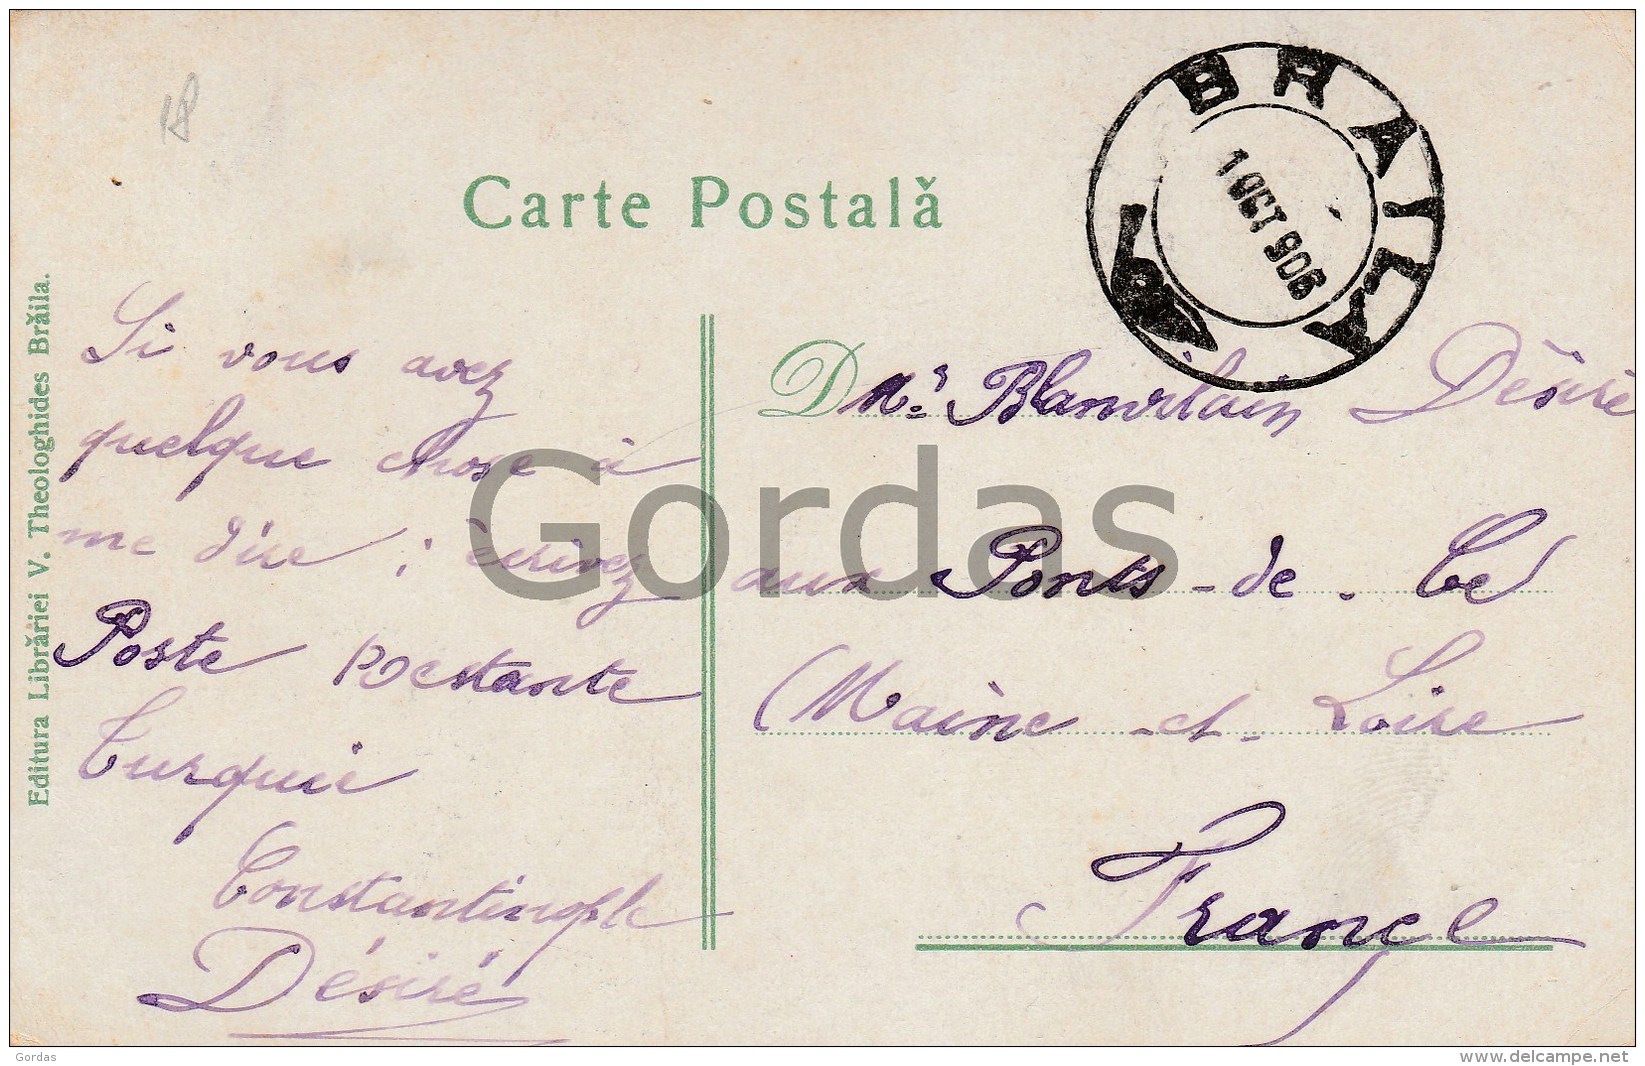 18
Carte Postală
BRAILA
1 OCT 906
Editura Librăriei V. Theologhides Brăila.
Si vous avez
quelque chose à
me dire ; ècrivez
Poste Restante
Turquie
Constantinople
Désiré
D Mr. Désiré
aux Ponts-de-Cé
(Maine-et-Loire
France
Gordas
Gordas
www.delcampe.net